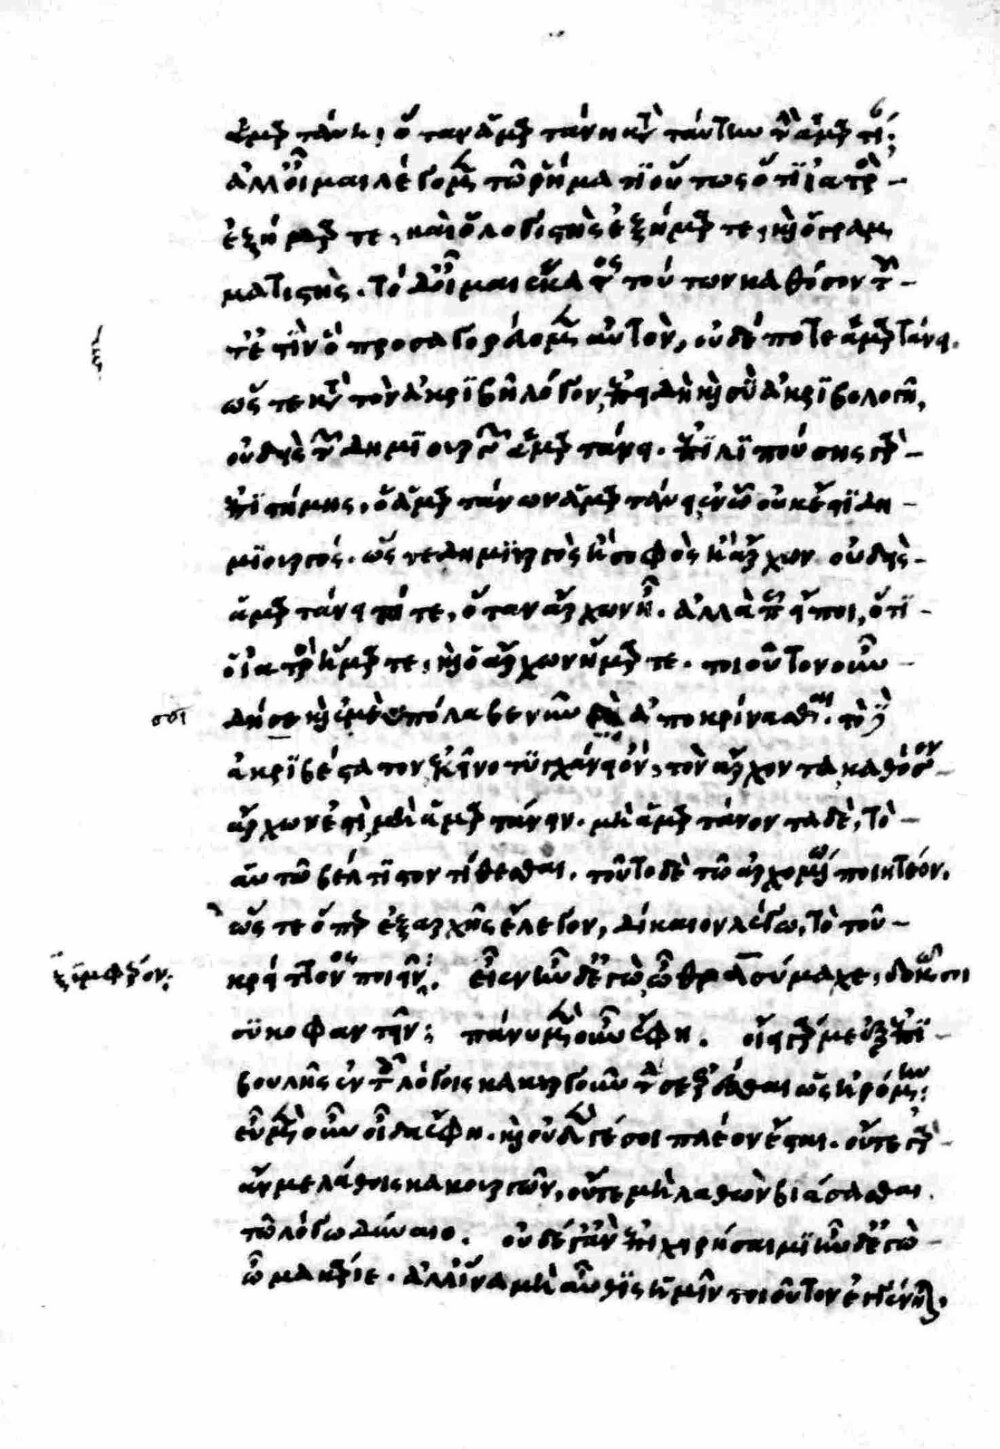 ἁμαρτάνει, ὅταν ἁμαρτάνῃ κατὰ ταύτην τὴν ἁμαρτίαν;
ἀλλ' οἶμαι λέγομεν τῷ ῥήματι οὕτως ὅτι ἰατρὸς
ἐξήμαρτε, καὶ ὁ λογιστὴς ἐξήμαρτε, καὶ ὁ γραμ
ματιστής. τὸ δ' οἶμαι ἕκαστος τούτων καθόσον τοῦτ'
ἐστὶν ὃ προσαγορεύομεν αὐτὸν, οὐδέποτε ἁμαρτάνει.
ὥστε κατὰ τὸν ἀκριβῆ λόγον, ἐπειδὴ καὶ σὺ ἀκριβολογῇ,
οὐδεὶς τῶν δημιουργῶν ἁμαρτάνει. ἐπιλιπούσης γὰρ
ἐπιστήμης, ὁ ἁμαρτάνων ἁμαρτάνει, ἐν ᾧ οὐκ ἔστι δη
μιουργός. ὥστε δημιουργὸς ἢ σοφὸς ἢ ἄρχων οὐδεὶς
ἁμαρτάνει τότε, ὅταν ἄρχων ᾖ. ἀλλὰ πᾶς γ' ἂν εἴποι, ὅτι
ὁ ἰατρὸς ἥμαρτε, καὶ ὁ ἄρχων ἥμαρτε. τοιοῦτον οὖν
σοι
δή σε καὶ ἐμὲ ὑπόλαβε νῦν δὴ ἀποκρίνασθαι. τὸ δὲ
ἀκριβέστατον, ἐκεῖνο τυγχάνει ὄν, τὸν ἄρχοντα, καθόσον
ἄρχων ἐστὶ, μὴ ἁμαρτάνειν. μὴ ἁμαρτάνοντα δὲ, τὸ
αὑτῷ βέλτιστον τίθεσθαι. τοῦτο δὲ τῷ ἀρχομένῳ ποιητέον.
ὥστε ὅπερ ἐξαρχῆς ἔλεγον, δίκαιον λέγω, τὸ τοῦ
ξυμφέρον:
κρείττονος ποιεῖν. εἶεν ἦν δ' ἐγὼ, ὦ θρασύμαχε, δοκῶ σοι
συκοφαντεῖν; πάνυ μὲν οὖν ἔφη. οἴει γάρ με ἐξ ἐπι
βουλῆς ἐν τοῖς λόγοις κακουργοῦντά σε ἐρέσθαι ὡς ἠρόμην;
εὖ μὲν οὖν οἶδα ἔφη. καὶ οὐδέν γέ σοι πλέον ἔσται. οὔτε γὰρ
ἄν με λάθοις κακουργῶν, οὔτε μὴ λαθὼν βιάσασθαι
τῷ λόγῳ δύναιο. οὐδέ γ' ἂν ἐπιχειρήσαιμι ἦν δ' ἐγὼ
ὦ μακάριε. ἀλλ' ἵνα μὴ αὖθις ἡμῖν τοιοῦτον ἐγγένηται,